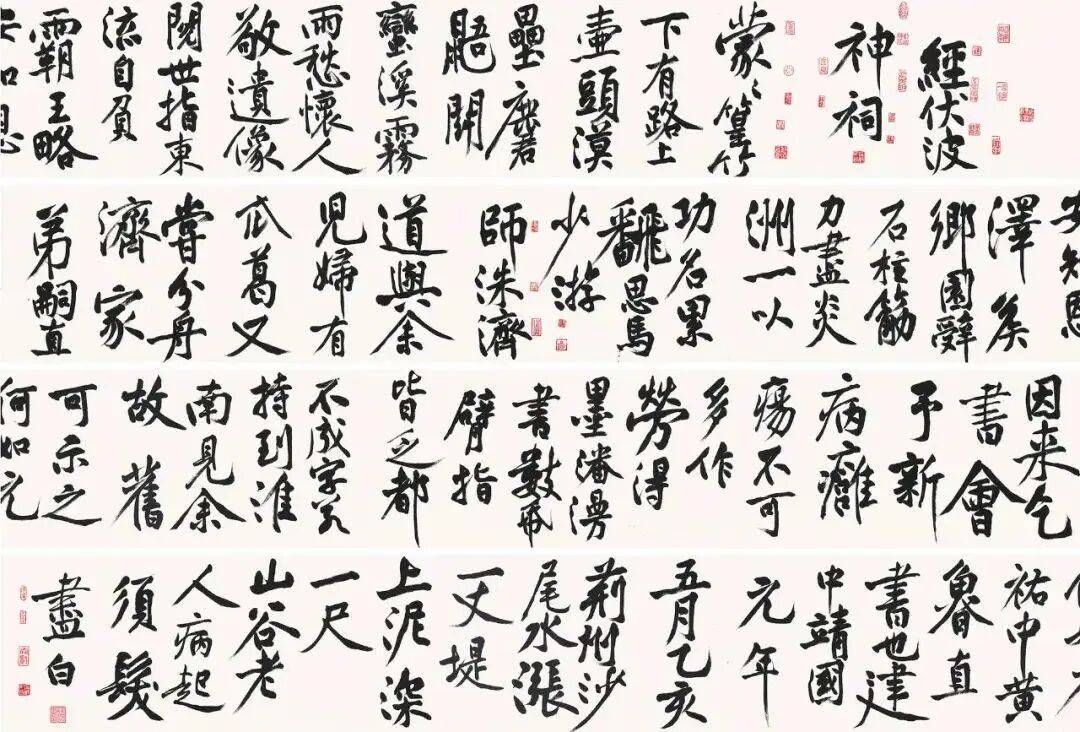 經伏波
神祠
蒙〻篁竹
下有路上
壷頭漢
壘麏
鼯閗
蠻溪霧
雨愁懷人
敬遺像
閱世指東
流自負
霸王略
安知恩
安知恩
澤侯
鄉園辭
石柱筋
力盡炎
洲一以
功名累
翻思馬
少游
師洙濟
道與余
兒婦有
瓜葛又
嘗分舟
濟家
弟嗣直
因来乞
書會
予新
病癰
瘍不可
多作
勞得
墨瀋漫
書數帋
臂指
皆乏都
不成字若
持到淮
南見余
故舊
可示之
何如元
何如元
祐中黄
魯直
書也建
中靖國
元年
五月乙亥
荊州沙
尾水漲
一丈堤
上泥深
一尺
山谷老
人病起
須髮
盡白